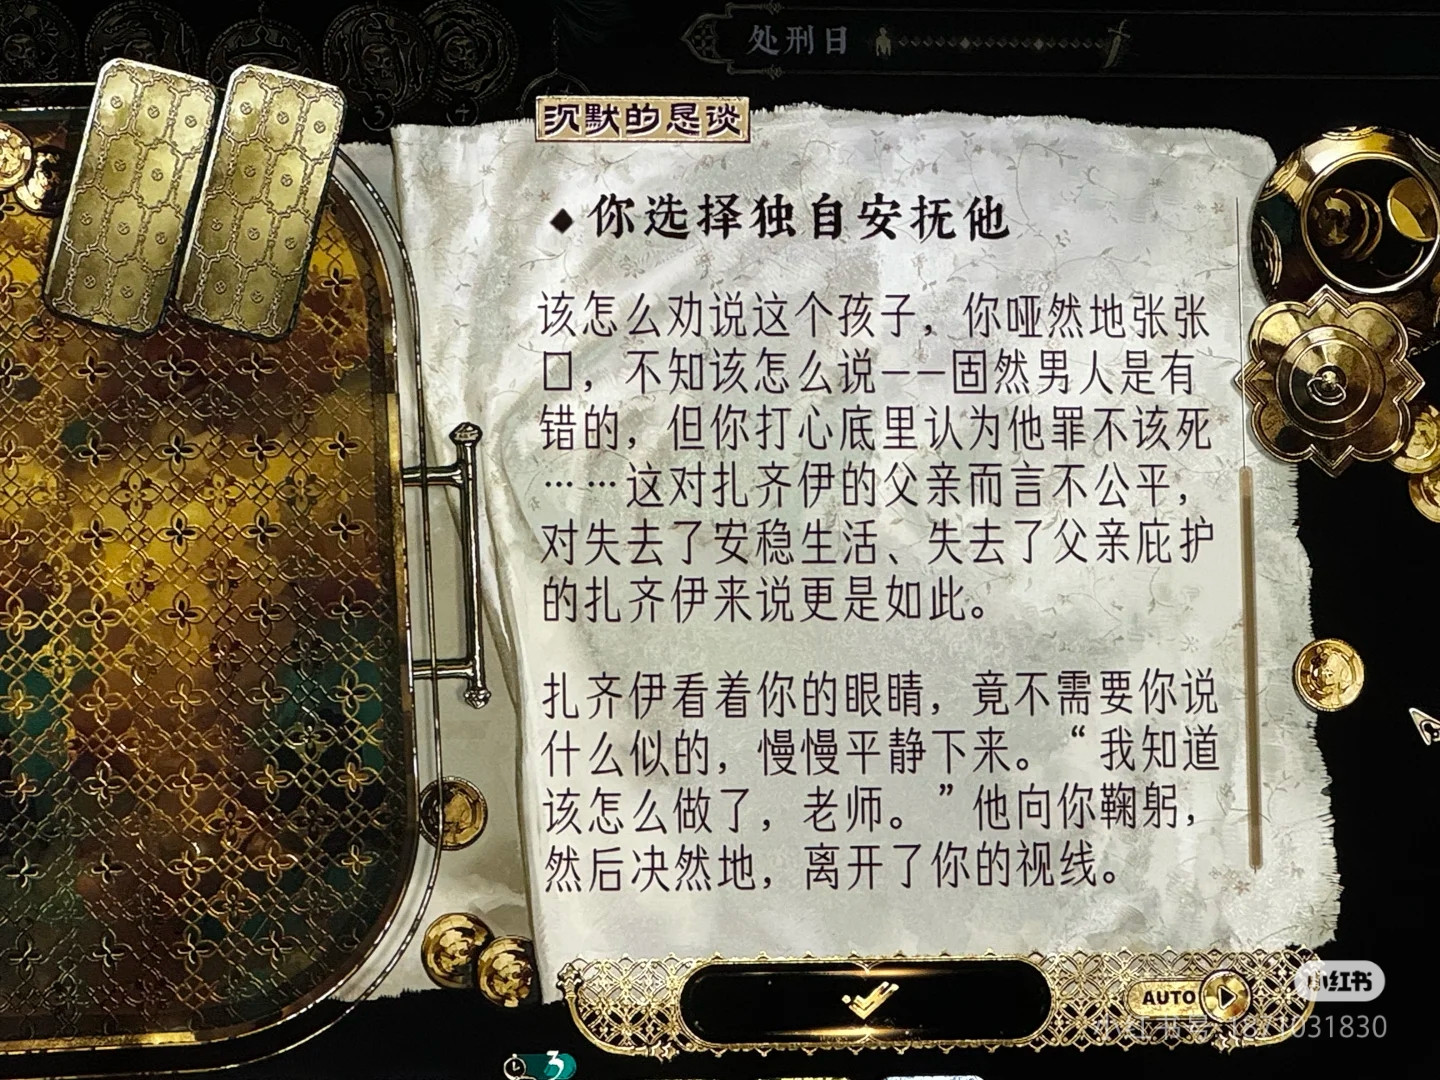 处刑日
沉默的恳谈
◆你选择独自安抚他
该怎么劝说这个孩子，你哑然地张张
口，不知该怎么说——固然男人是有
错的，但你打心底里认为他罪不该死
……这对扎齐伊的父亲而言不公平，
对失去了安稳生活、失去了父亲庇护
的扎齐伊来说更是如此。
扎齐伊看着你的眼睛，竟不需要你说
什么似的，慢慢平静下来。“我知道
该怎么做了，老师。”他向你鞠躬，
然后决然地，离开了你的视线。
AUTO
小红书
小红书号: 1871031830
3